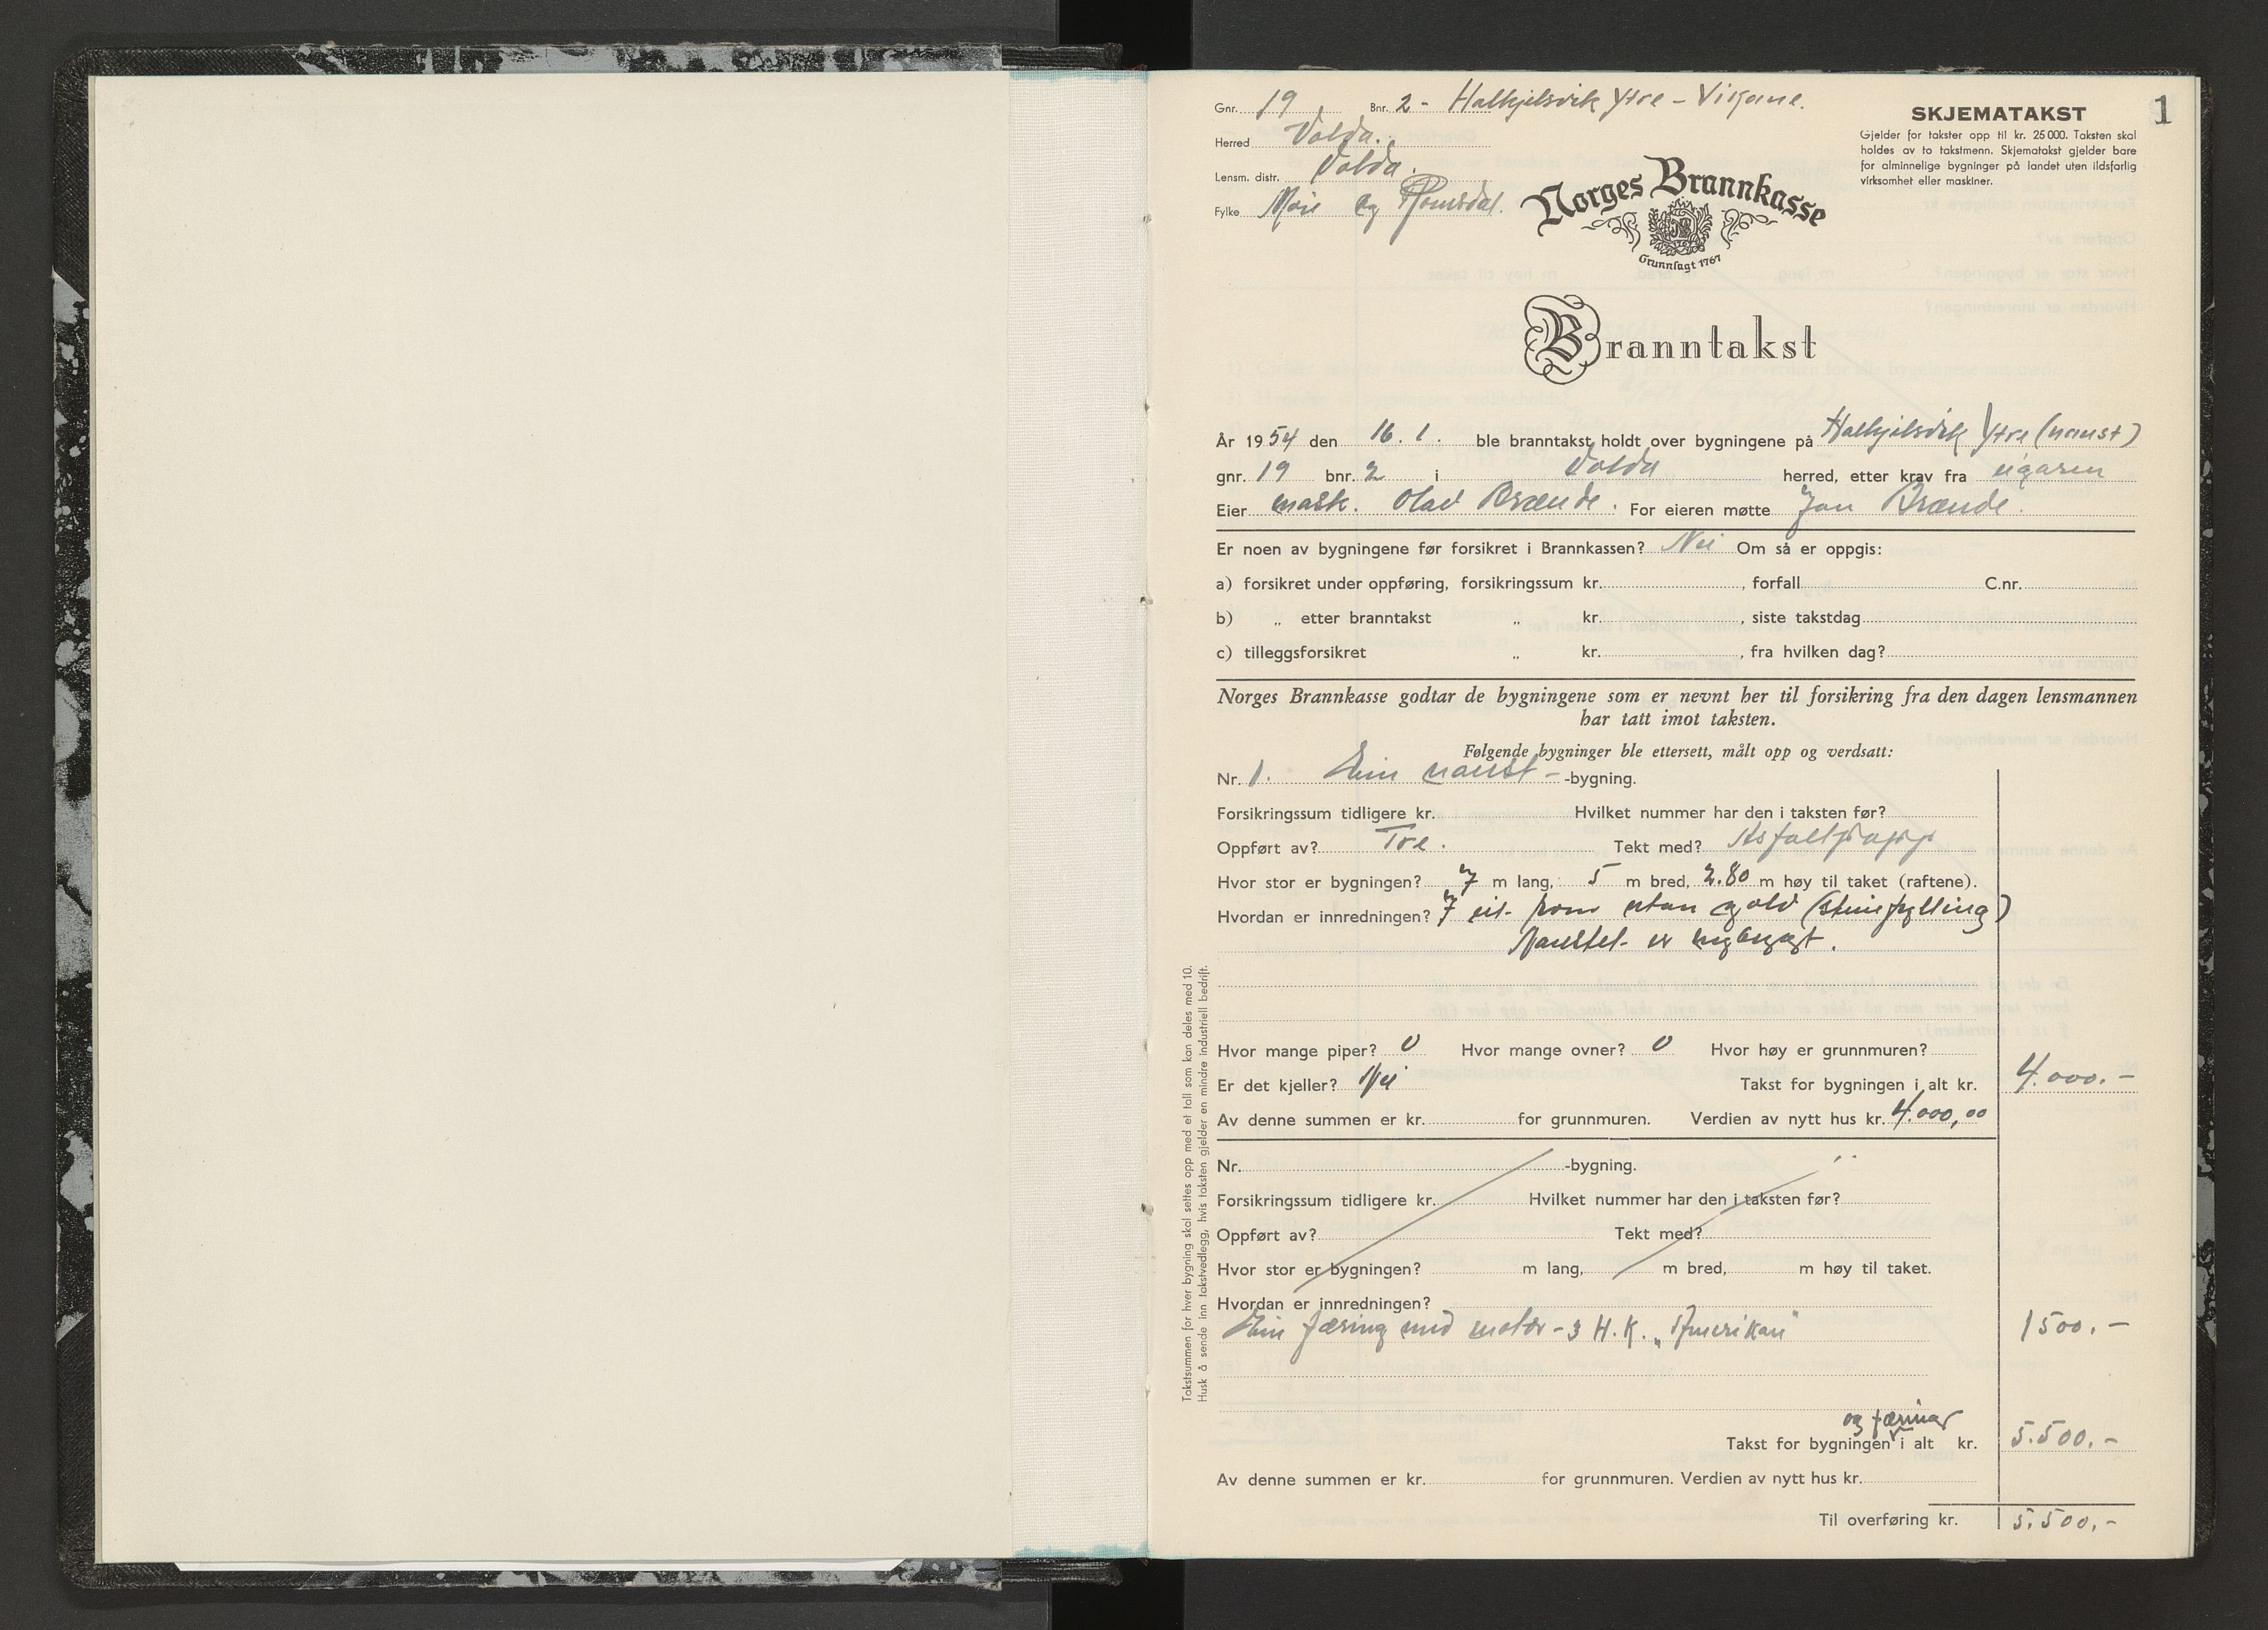 1
SKJEMATAKST
Gjelder for takster opp til kr. 25 000. Taksten skal
holdes av to takstmenn. Skjematakst gjelder bare
for alminnelige bygninger på landet uten ildsfarlig
virksomhet eller maskiner.
Gnr. 19 Bnr. 2 - Halkjelsvik Ytre - Vikane.
Herred Volda.
Lensm. distr. Volda.
Fylke Møre og Romsdal.
Norges Brannkasse
Grunnlagt 1767
Branntakst
År 1954 den 16. 1. ble branntakst holdt over bygningene på Halkjelsvik Ytre (naust)
gnr. 19 bnr. 2 i Volda herred, etter krav fra eigaren
Eier mask. Olav Brænde. For eieren møtte Jon Brænde.
Er noen av bygningene før forsikret i Brannkassen? Nei Om så er oppgis:
a) forsikret under oppføring, forsikringssum kr. , forfall C.nr.
b) „ etter branntakst „ kr. , siste takstdag
c) tilleggsforsikret „ kr. , fra hvilken dag?
Norges Brannkasse godtar de bygningene som er nevnt her til forsikring fra den dagen lensmannen
har tatt imot taksten.
Følgende bygninger ble ettersett, målt opp og verdsatt:
Nr. 1. Ein naust- -bygning.
Forsikringssum tidligere kr. Hvilket nummer har den i taksten før?
Oppført av? Tre. Tekt med? Asfaltpapp
Hvor stor er bygningen? 7 m lang, 5 m bred, 2.80 m høy til taket (raftene).
Hvordan er innredningen? I eit rom utan golv (steinfylling)
Naustet er nybygt.
Hvor mange piper? 0 Hvor mange ovner? 0 Hvor høy er grunnmuren?
Er det kjeller? Nei Takst for bygningen i alt kr. 4.000.-
Av denne summen er kr. for grunnmuren. Verdien av nytt hus kr. 4.000,00
Nr. -bygning.
Forsikringssum tidligere kr. Hvilket nummer har den i taksten før?
Oppført av? Tekt med?
Hvor stor er bygningen? m lang, m bred, m høy til taket.
Hvordan er innredningen?
Ein færing med motor - 3 H.K. „Amerikan" 1500.-
og færing
Takst for bygningen i alt kr. 5.500.-
Av denne summen er kr. for grunnmuren. Verdien av nytt hus kr.
Til overføring kr. 5.500.-
Takstsummen for hver bygning skal settes opp med et tall som kan deles med 10.
Husk å sende inn takstvedlegg, hvis taksten gjelder en mindre industriell bedrift.